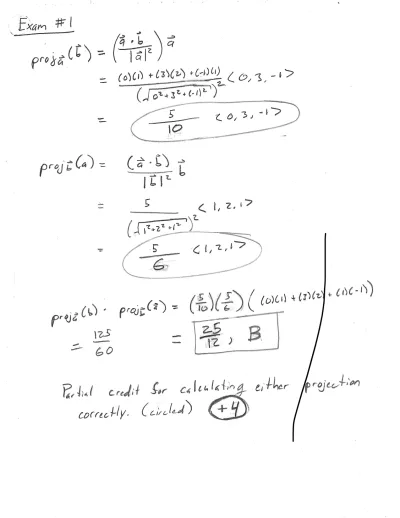 Exam #1
proj_a⃗(b⃗) = (a⃗ · b⃗ / |a⃗|²) a⃗
= (0)(1) + (3)(2) + (-1)(1) / (√0² + 3² + (-1)²)² <0, 3, -1>
= 5/10 <0, 3, -1>
proj_b⃗(a) = (a⃗ · b⃗) / |b⃗|² b⃗
= 5 / (√1² + 2² + 1²)² <1, 2, 1>
= 5/6 <1, 2, 1>
proj_a⃗(b) · proj_b⃗(a⃗) = (5/10)(5/6) ( (0)(1) + (3)(2) + (1)(-1))
= 125/60 = 25/12, B
Partial credit for calculating either projection
correctly. (circled) +4